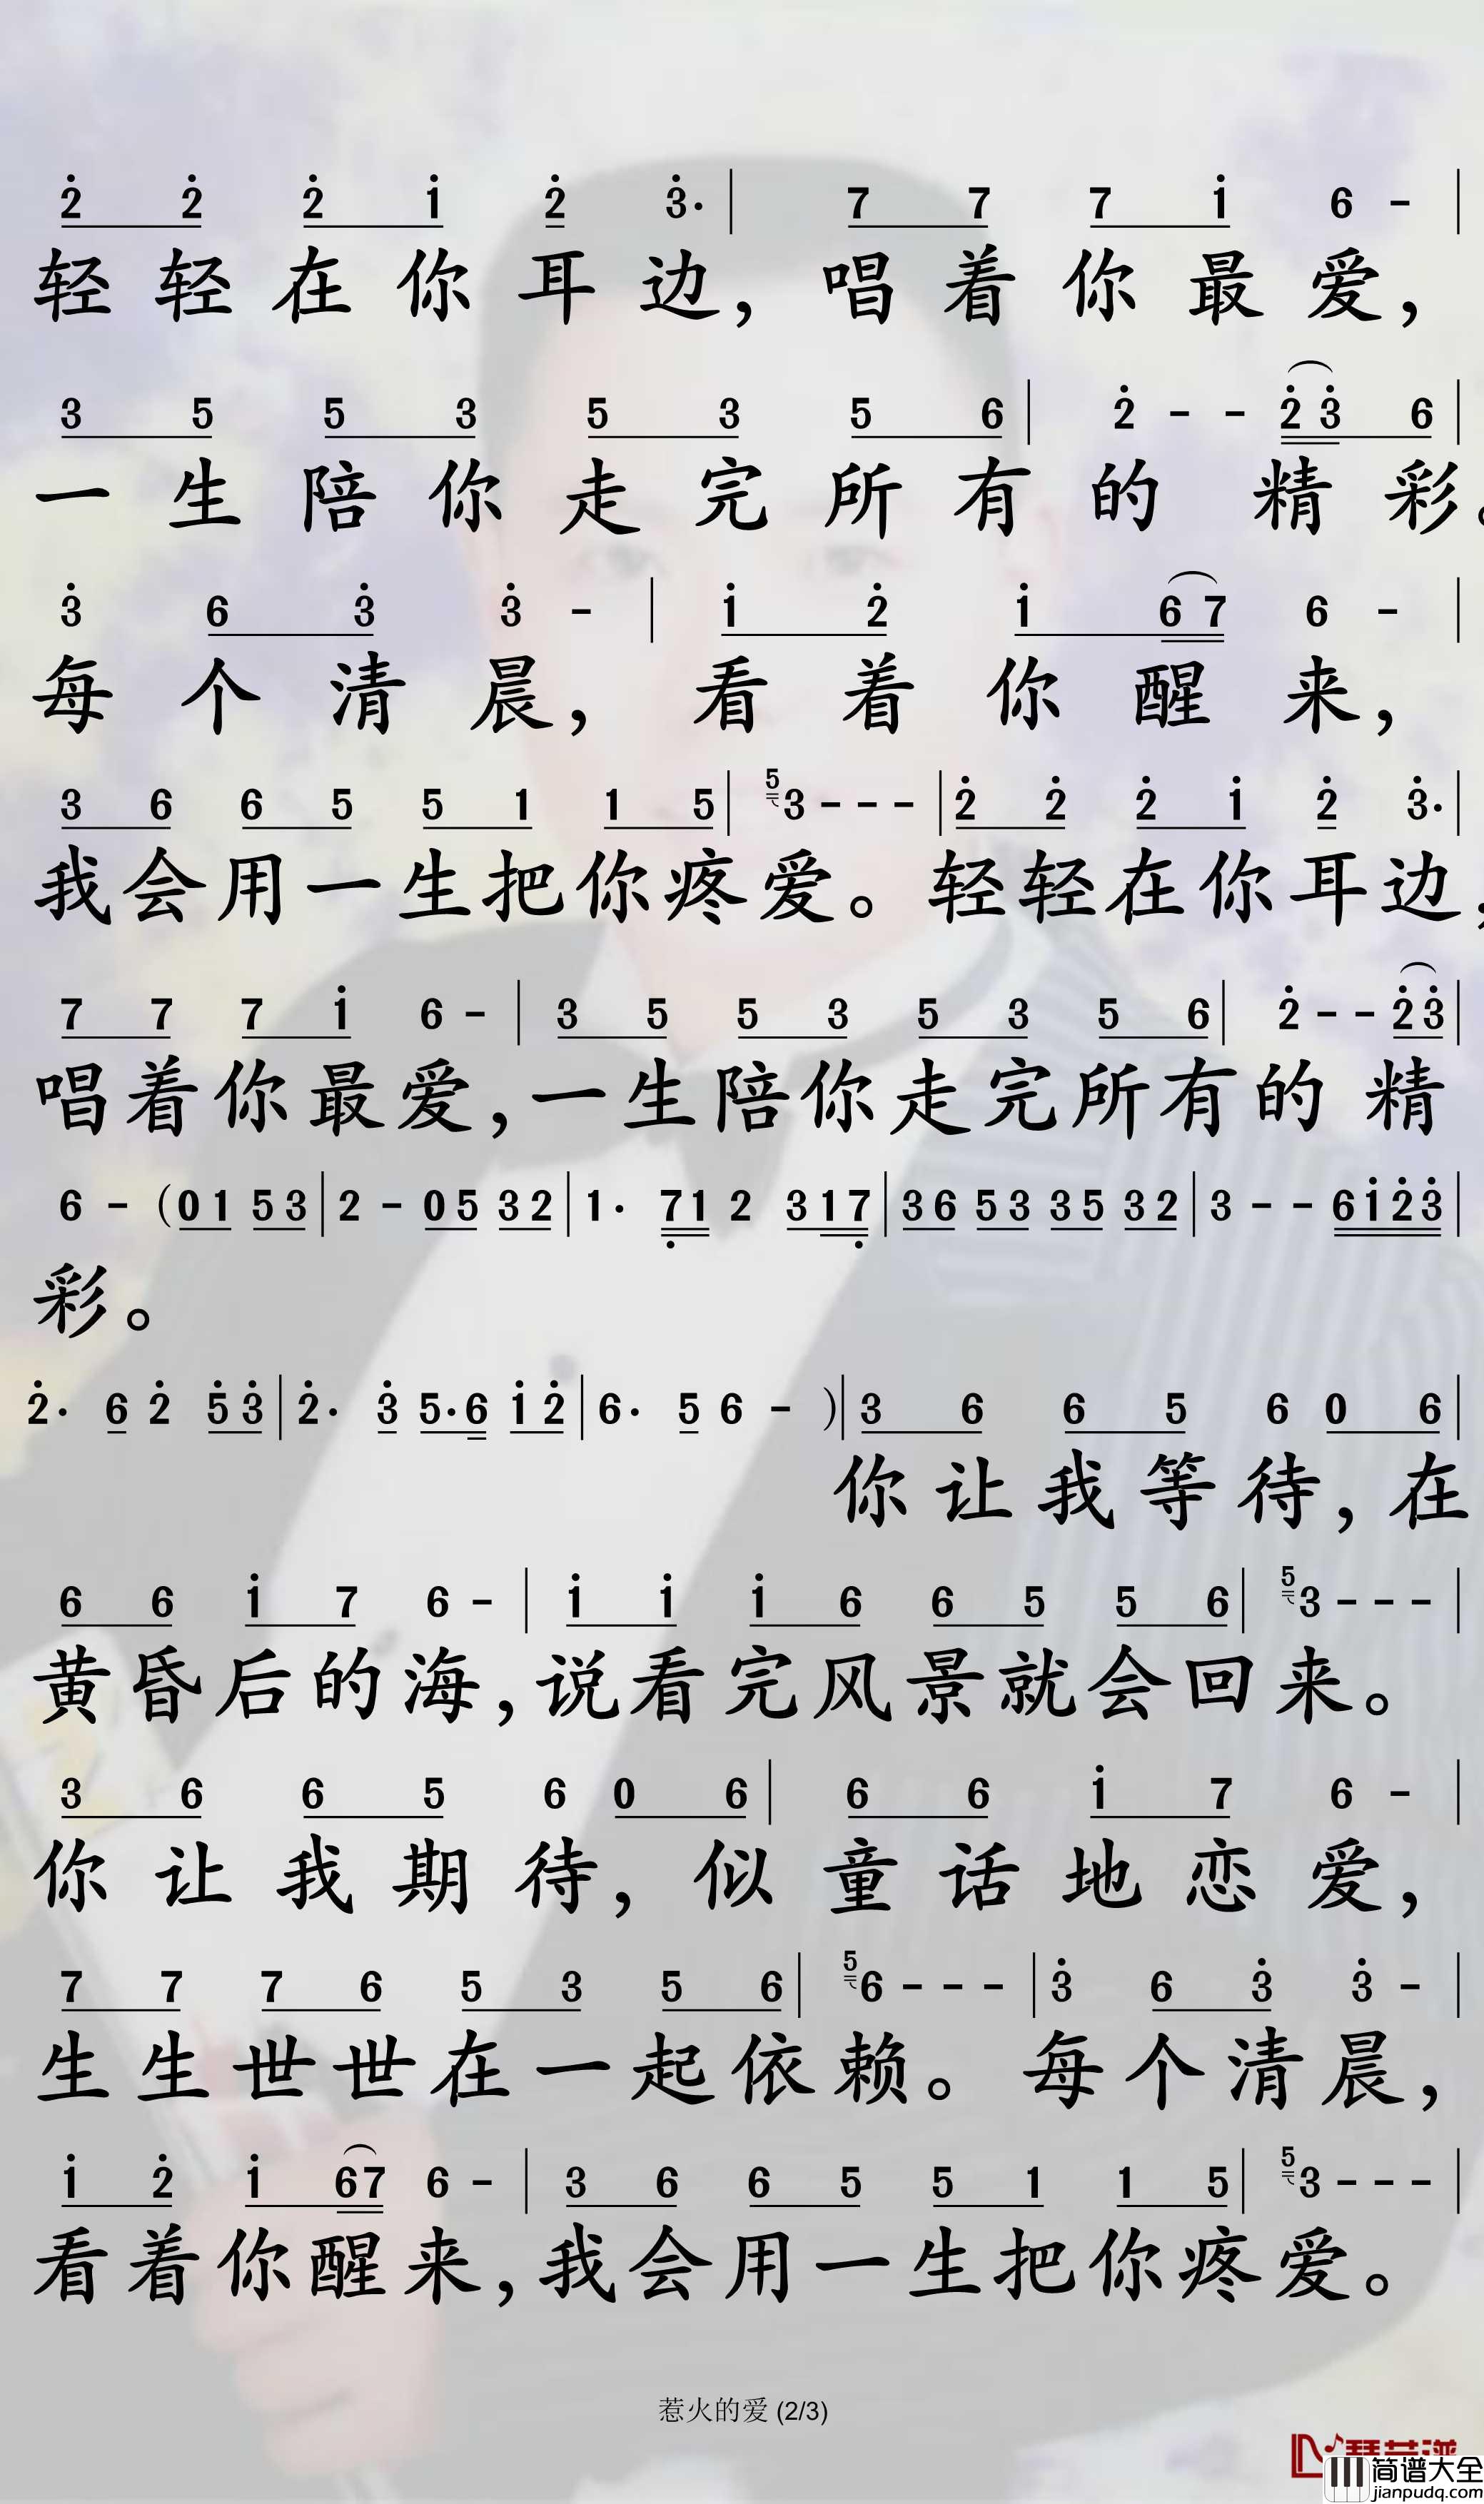 2̇ 2̇ 2̇ 1̇ 2̇ 3̇· | 7 7 7 1̇ 6 - |
轻轻在你耳边，唱着你最爱，
3 5 5 3 5 3 5 6 | 2̇ - - 2̇ 3̇ 6 |
一生陪你走完所有的精彩。
3̇ 6 3̇ 3̇ - | 1̇ 2̇ 1̇ 6 7 6 - |
每个清晨，看着你醒来，
3 6 6 5 5 1 1 5 | 5 3 - - - | 2̇ 2̇ 2̇ 1̇ 2̇ 3̇· |
我会用一生把你疼爱。轻轻在你耳边，
7 7 7 1̇ 6 - | 3 5 5 3 5 3 5 6 | 2̇ - - 2̇ 3̇ |
唱着你最爱，一生陪你走完所有的精
6 - (0 1 5 3 | 2 - 0 5 3 2 | 1· 7̣ 1 2 3 1 7̣ | 3 6 5 3 3 5 3 2 | 3 - - 6 1̇ 2̇ 3̇ |
彩。
2̇· 6 2̇ 5̇ 3̇ | 2̇· 3̇ 5· 6 1̇ 2̇ | 6· 5 6 - ) | 3 6 6 5 6 0 6 |
你让我等待，在
6 6 1̇ 7 6 - | 1̇ 1̇ 1̇ 6 6 5 5 6 | 5 3 - - - |
黄昏后的海，说看完风景就会回来。
3 6 6 5 6 0 6 | 6 6 1̇ 7 6 - |
你让我期待，似童话地恋爱，
7 7 7 6 5 3 5 6 | 5 6 - - - | 3̇ 6 3̇ 3̇ - |
生生世世在一起依赖。每个清晨，
1̇ 2̇ 1̇ 6 7 6 - | 3 6 6 5 5 1 1 5 | 5 3 - - - |
看着你醒来，我会用一生把你疼爱。
惹火的爱 (2/3)
简谱大全
jianpudq.com